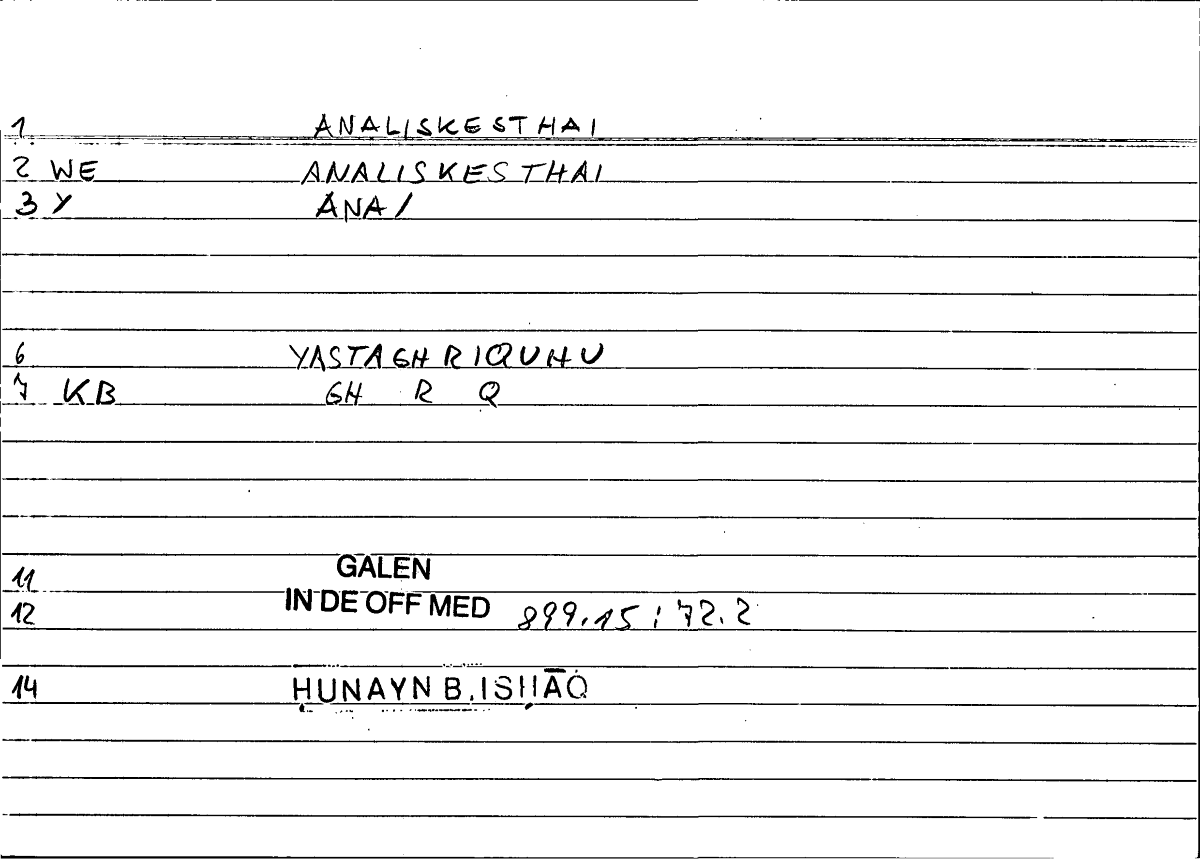 1 ANALISKESTHAI
2 WE ANALISKESTHAI
3 Y ANA/
6 YASTAGHRIQUHU
7 KB GH R Q
11 GALEN
12 IN DE OFF MED 899.15 : 72.2
14 ḤUNAYN B. ISḤĀQ